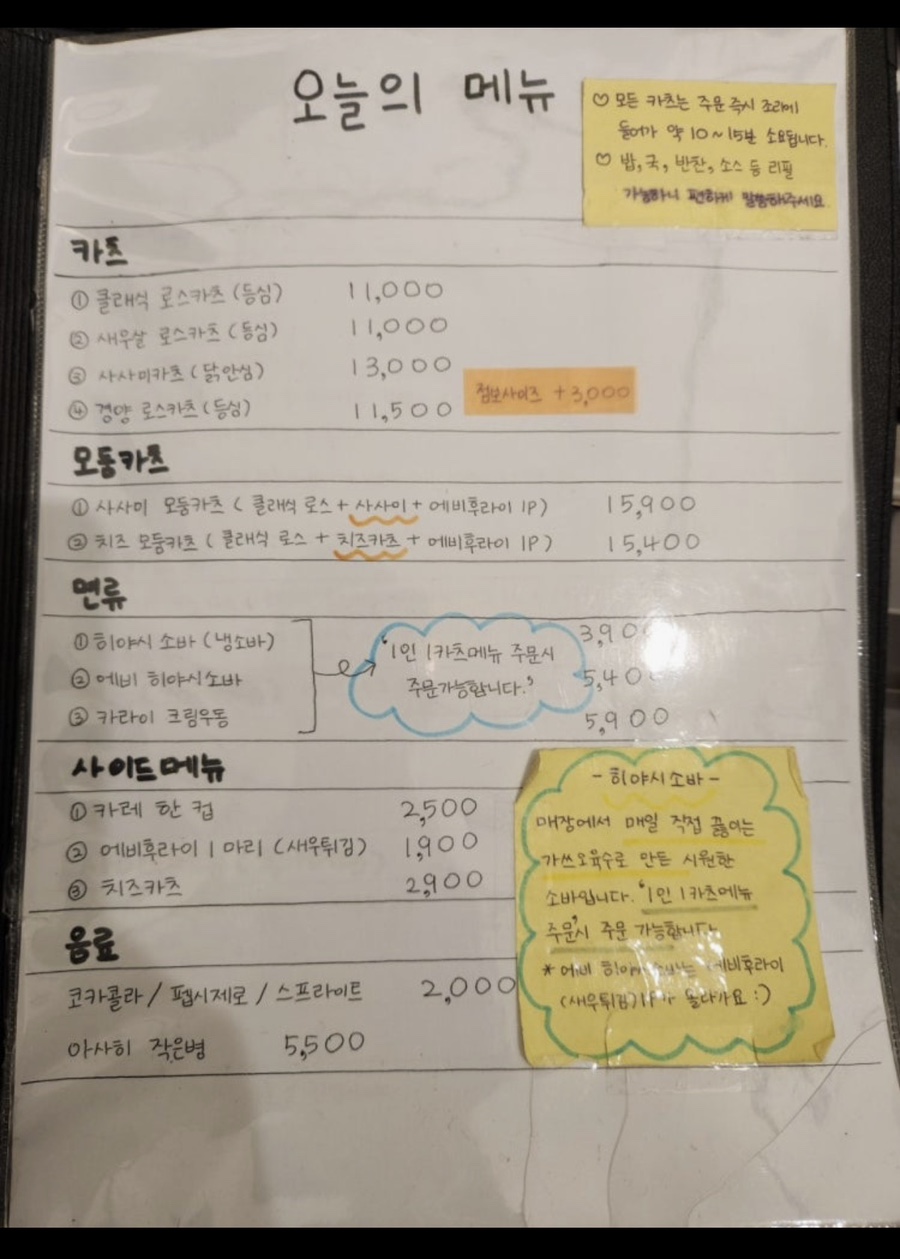 오늘의 메뉴
♡ 모든 카츠는 주문 즉시 조리에
들어가 약 10~15분 소요됩니다.
♡ 밥, 국, 반찬, 소스 등 리필
가능하니 편하게 말씀해주세요.
카츠
① 클래식 로스카츠 (등심) 11,000
② 새우살 로스카츠 (등심) 11,000
③ 사사미카츠 (닭안심) 13,000
점보사이즈 +3,000
④ 경양 로스카츠 (등심) 11,500
모둠카츠
① 사사미 모둠카츠 ( 클래식 로스 + 사사미 + 에비후라이 1P) 15,900
② 치즈 모둠카츠 ( 클래식 로스 + 치즈카츠 + 에비후라이 1P) 15,400
면류
① 히야시 소바 (냉소바) 3,90
② 에비 히야시소바 5,40
③ 카라이 크림우동 5,900
'1인 1카츠메뉴 주문시
주문가능합니다.'
사이드메뉴
① 카레 한 컵 2,500
② 에비후라이 1마리 (새우튀김) 1,900
③ 치즈카츠 2,900
- 히야시소바 -
매장에서 매일 직접 끓이는
가쓰오육수로 만든 시원한
소바입니다. '1인 1카츠메뉴
주문시' 주문 가능합니다
* 에비 히야시소바는 에비후라이
(새우튀김)1P가 올라가요 :)
음료
코카콜라 / 펩시제로 / 스프라이트 2,000
아사히 작은병 5,500